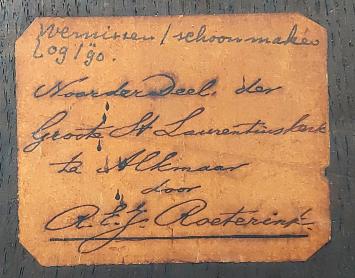 Vernissen / schoonmaken
Log / 90.
Noorder Deel. der
Groote St Laurentiuskerk
te Alkmaar
door
A. E. J. Roeterink.